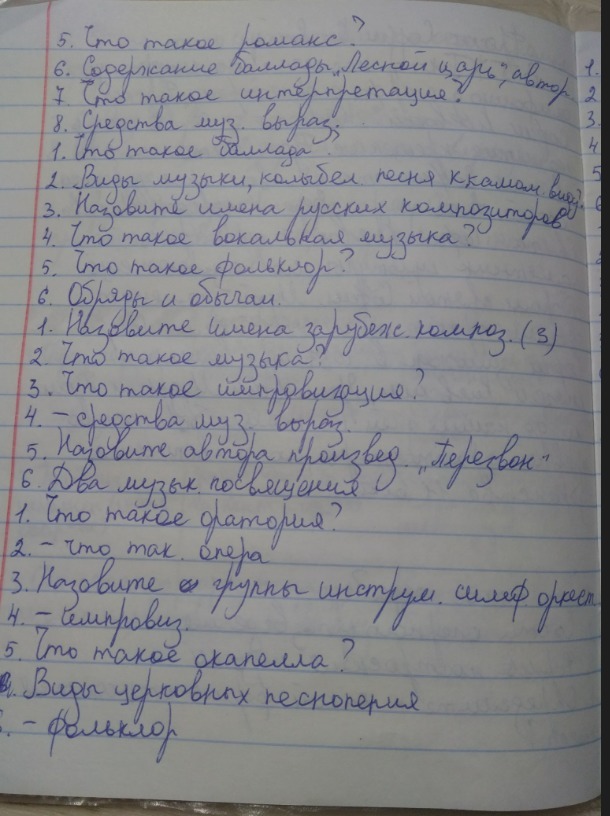 5. Что такое романс?
6. Содержание баллады „Лесной царь", автор
7. Что такое интерпретация?
8. Средства муз. выраз.
1. Что такое баллада?
2. Виды музыки, колыбел песня к каком виду?
3. Назовите имена русских композиторов
4. Что такое вокальная музыка?
5. Что такое фольклор?
6. Обряды и обычаи.
1. Назовите имена зарубеж. композ. (3)
2. Что такое музыка?
3. Что такое импровизация?
4. – средства муз. выраз.
5. Назовите автора произвед. „Перезвон"
6. Два музык. посвящения
1. Что такое оратория?
2. – что так. опера
3. Назовите группы инструм. симф. оркест
4. – Импровиз.
5. Что такое окапелла?
Виды церковных песнопения
– Фольклор
1.
2
3.
4
5